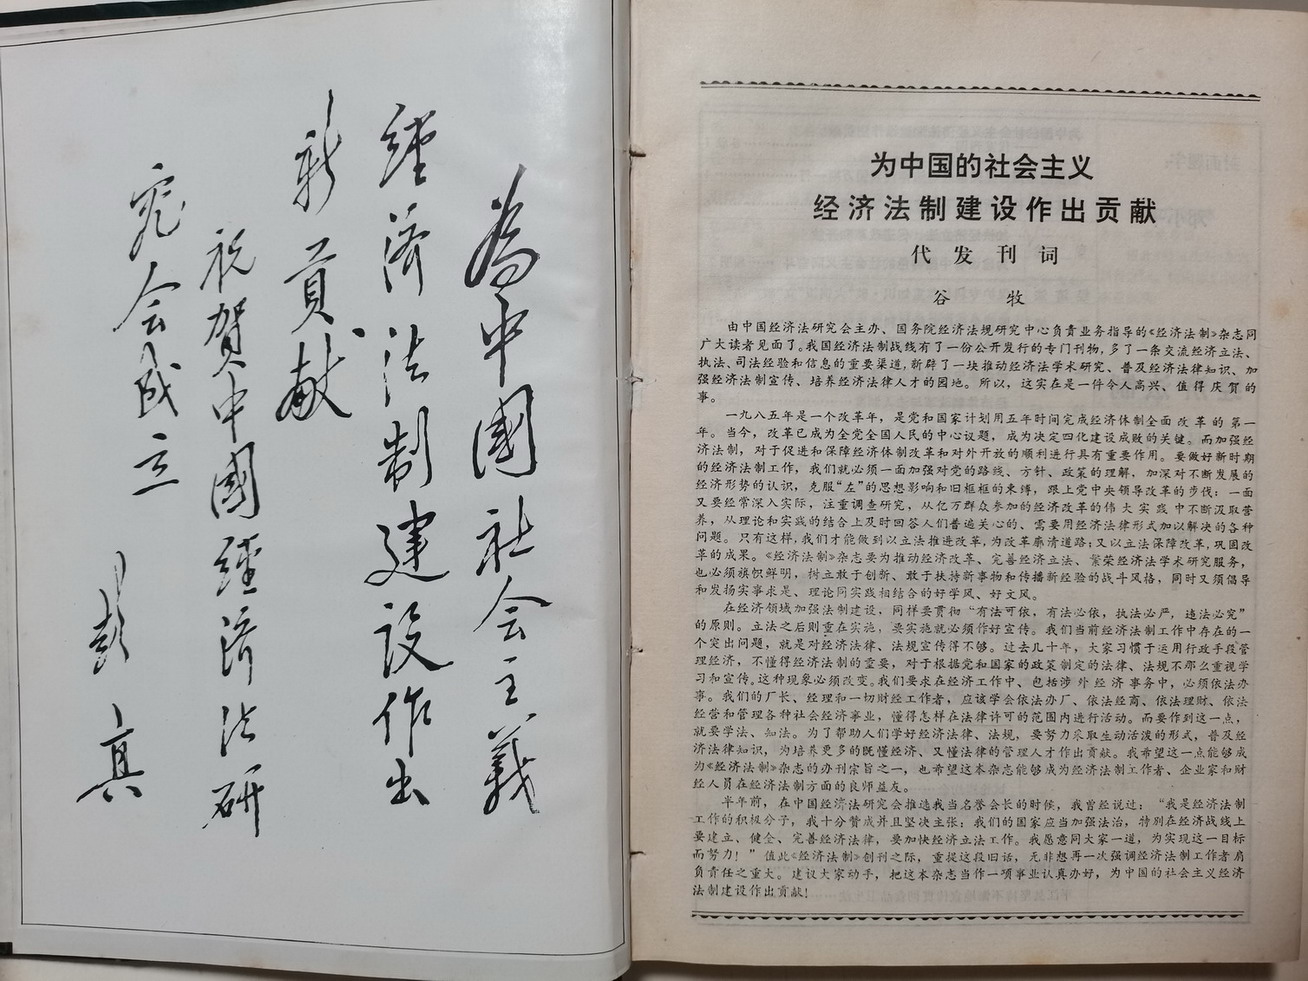 为中国社会主义
经济法制建设作出
新贡献
祝贺中国经济法研
究会成立
彭真
为中国的社会主义
经济法制建设作出贡献
代发刊词
谷 牧
由中国经济法研究会主办、国务院经济法规研究中心负责业务指导的《经济法制》杂志同
广大读者见面了。我国经济法制战线有了一份公开发行的专门刊物,多了一条交流经济立法、
执法、司法经验和信息的重要渠道,新辟了一块推动经济法学术研究、普及经济法律知识、加
强经济法制宣传、培养经济法律人才的园地。所以，这实在是一件令人高兴、值得庆贺的
事。
一九八五年是一个改革年，是党和国家计划用五年时间完成经济体制全面改革的第一
年。当今，改革已成为全党全国人民的中心议题，成为决定四化建设成败的关键。而加强经
济法制，对于促进和保障经济体制改革和对外开放的顺利进行具有重要作用。要做好新时期
的经济法制工作，我们就必须一面加强对党的路线、方针、政策的理解，加深对不断发展的
经济形势的认识，克服“左”的思想影响和旧框框的束缚，跟上党中央领导改革的步伐；一面
又要经常深入实际，注重调查研究，从亿万群众参加的经济改革的伟大实践中不断汲取营
养，从理论和实践的结合上及时回答人们普遍关心的、需要用经济法律形式加以解决的各种
问题。只有这样,我们才能做到以立法推进改革,为改革廓清道路;又以立法保障改革,巩固改
革的成果。《经济法制》杂志要为推动经济改革、完善经济立法、繁荣经济法学术研究服务，
也必须旗帜鲜明，树立敢于创新、敢于扶持新事物和传播新经验的战斗风格，同时又须倡导
和发扬实事求是、理论同实践相结合的好学风、好文风。
在经济领域加强法制建设，同样要贯彻“有法可依，有法必依，执法必严，违法必究”
的原则。立法之后则重在实施，要实施就必须作好宣传。我们当前经济法制工作中存在的一
个突出问题，就是对经济法律、法规宣传得不够。过去几十年，大家习惯于运用行政手段管
理经济，不懂得经济法制的重要，对于根据党和国家的政策制定的法律、法规不那么重视学
习和宣传。这种现象必须改变。我们要求在经济工作中、包括涉外经济事务中，必须依法办
事。我们的厂长、经理和一切财经工作者，应该学会依法办厂、依法经商、依法理财、依法
经营和管理各种社会经济事业，懂得怎样在法律许可的范围内进行活动。而要作到这一点，
就要学法、知法。为了帮助人们学好经济法律、法规，要努力采取生动活泼的形式，普及经
济法律知识，为培养更多的既懂经济、又懂法律的管理人才作出贡献。我希望这一点能够成
为《经济法制》杂志的办刊宗旨之一，也希望这本杂志能够成为经济法制工作者、企业家和财
经人员在经济法制方面的良师益友。
半年前，在中国经济法研究会推选我当名誉会长的时候，我曾经说过：“我是经济法制
工作的积极分子，我十分赞成并且坚决主张：我们的国家应当加强法治，特别在经济战线上
要建立、健全、完善经济法律，要加快经济立法工作。我愿意同大家一道，为实现这一目标
而努力！”值此《经济法制》创刊之际，重提这段旧话，无非想再一次强调经济法制工作者肩
负责任之重大。建议大家动手，把这本杂志当作一项事业认真办好，为中国的社会主义经济
法制建设作出贡献!